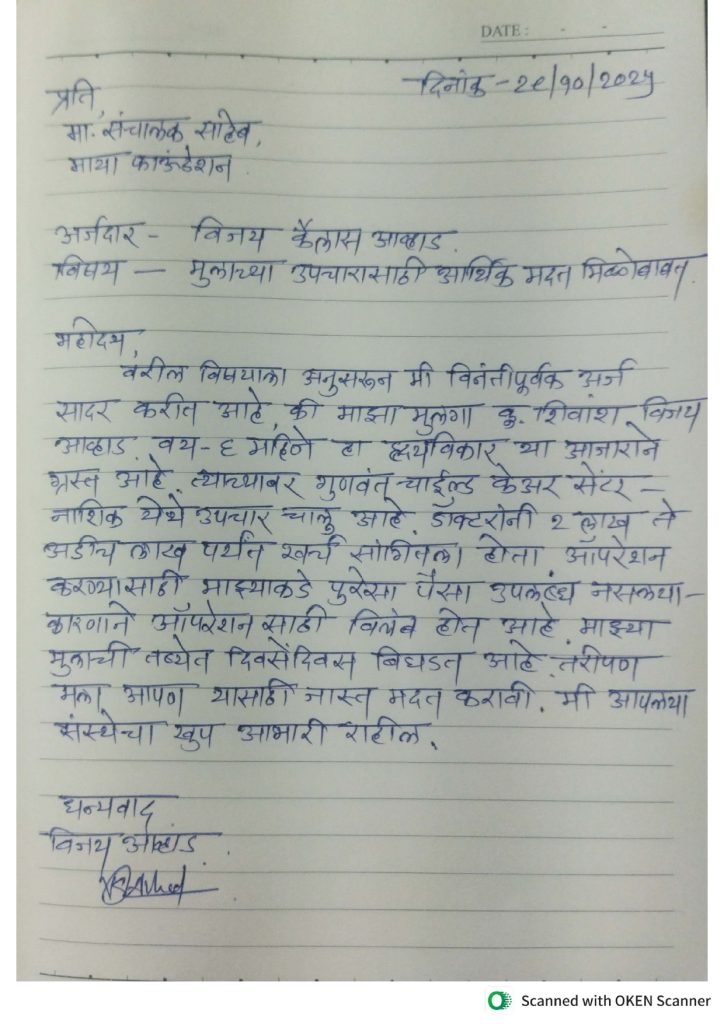 DATE : - -
दिनांक - २९/१०/२०२५
प्रति,
मा. संचालक साहेब,
माया फाऊंडेशन
अर्जदार - विजय कैलास आव्हाड.
विषय - मुलाच्या उपचारासाठी आर्थिक मदत मिळणेबाबत.
महोदय,
वरील विषयाला अनुसरून मी विनंतीपूर्वक अर्ज
सादर करीत आहे, की माझा मुलगा कु. शिवांश विजय
आव्हाड. वय - ६ महिने हा हृदयविकार या आजाराने
ग्रस्त आहे. त्याच्यावर गुणवंत चाईल्ड केअर सेंटर -
नाशिक येथे उपचार चालू आहे. डॉक्टरांनी २ लाख ते
अडीच लाख पर्यंत खर्च सांगितला होता ऑपरेशन
करण्यासाठी माझ्याकडे पुरेसा पैसा उपलब्ध नसलया -
कारणाने ऑपरेशन साठी विलंब होत आहे. माझ्या
मुलाची तब्येत दिवसेंदिवस बिघडत आहे. तरीपण
मला आपण यासाठी जास्त मदत करावी. मी आपलया
संस्थेचा खुप आभारी राहील.
धन्यवाद
विजय आव्हाड.
Scanned with OKEN Scanner